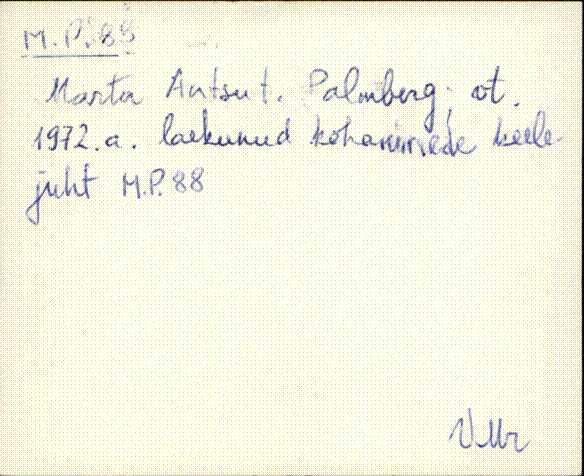 M.P. 88
Marta Antsu t. Palmberg; ot.
1972.a. laekunud kohanimede keele-
juht M.P. 88
VMr